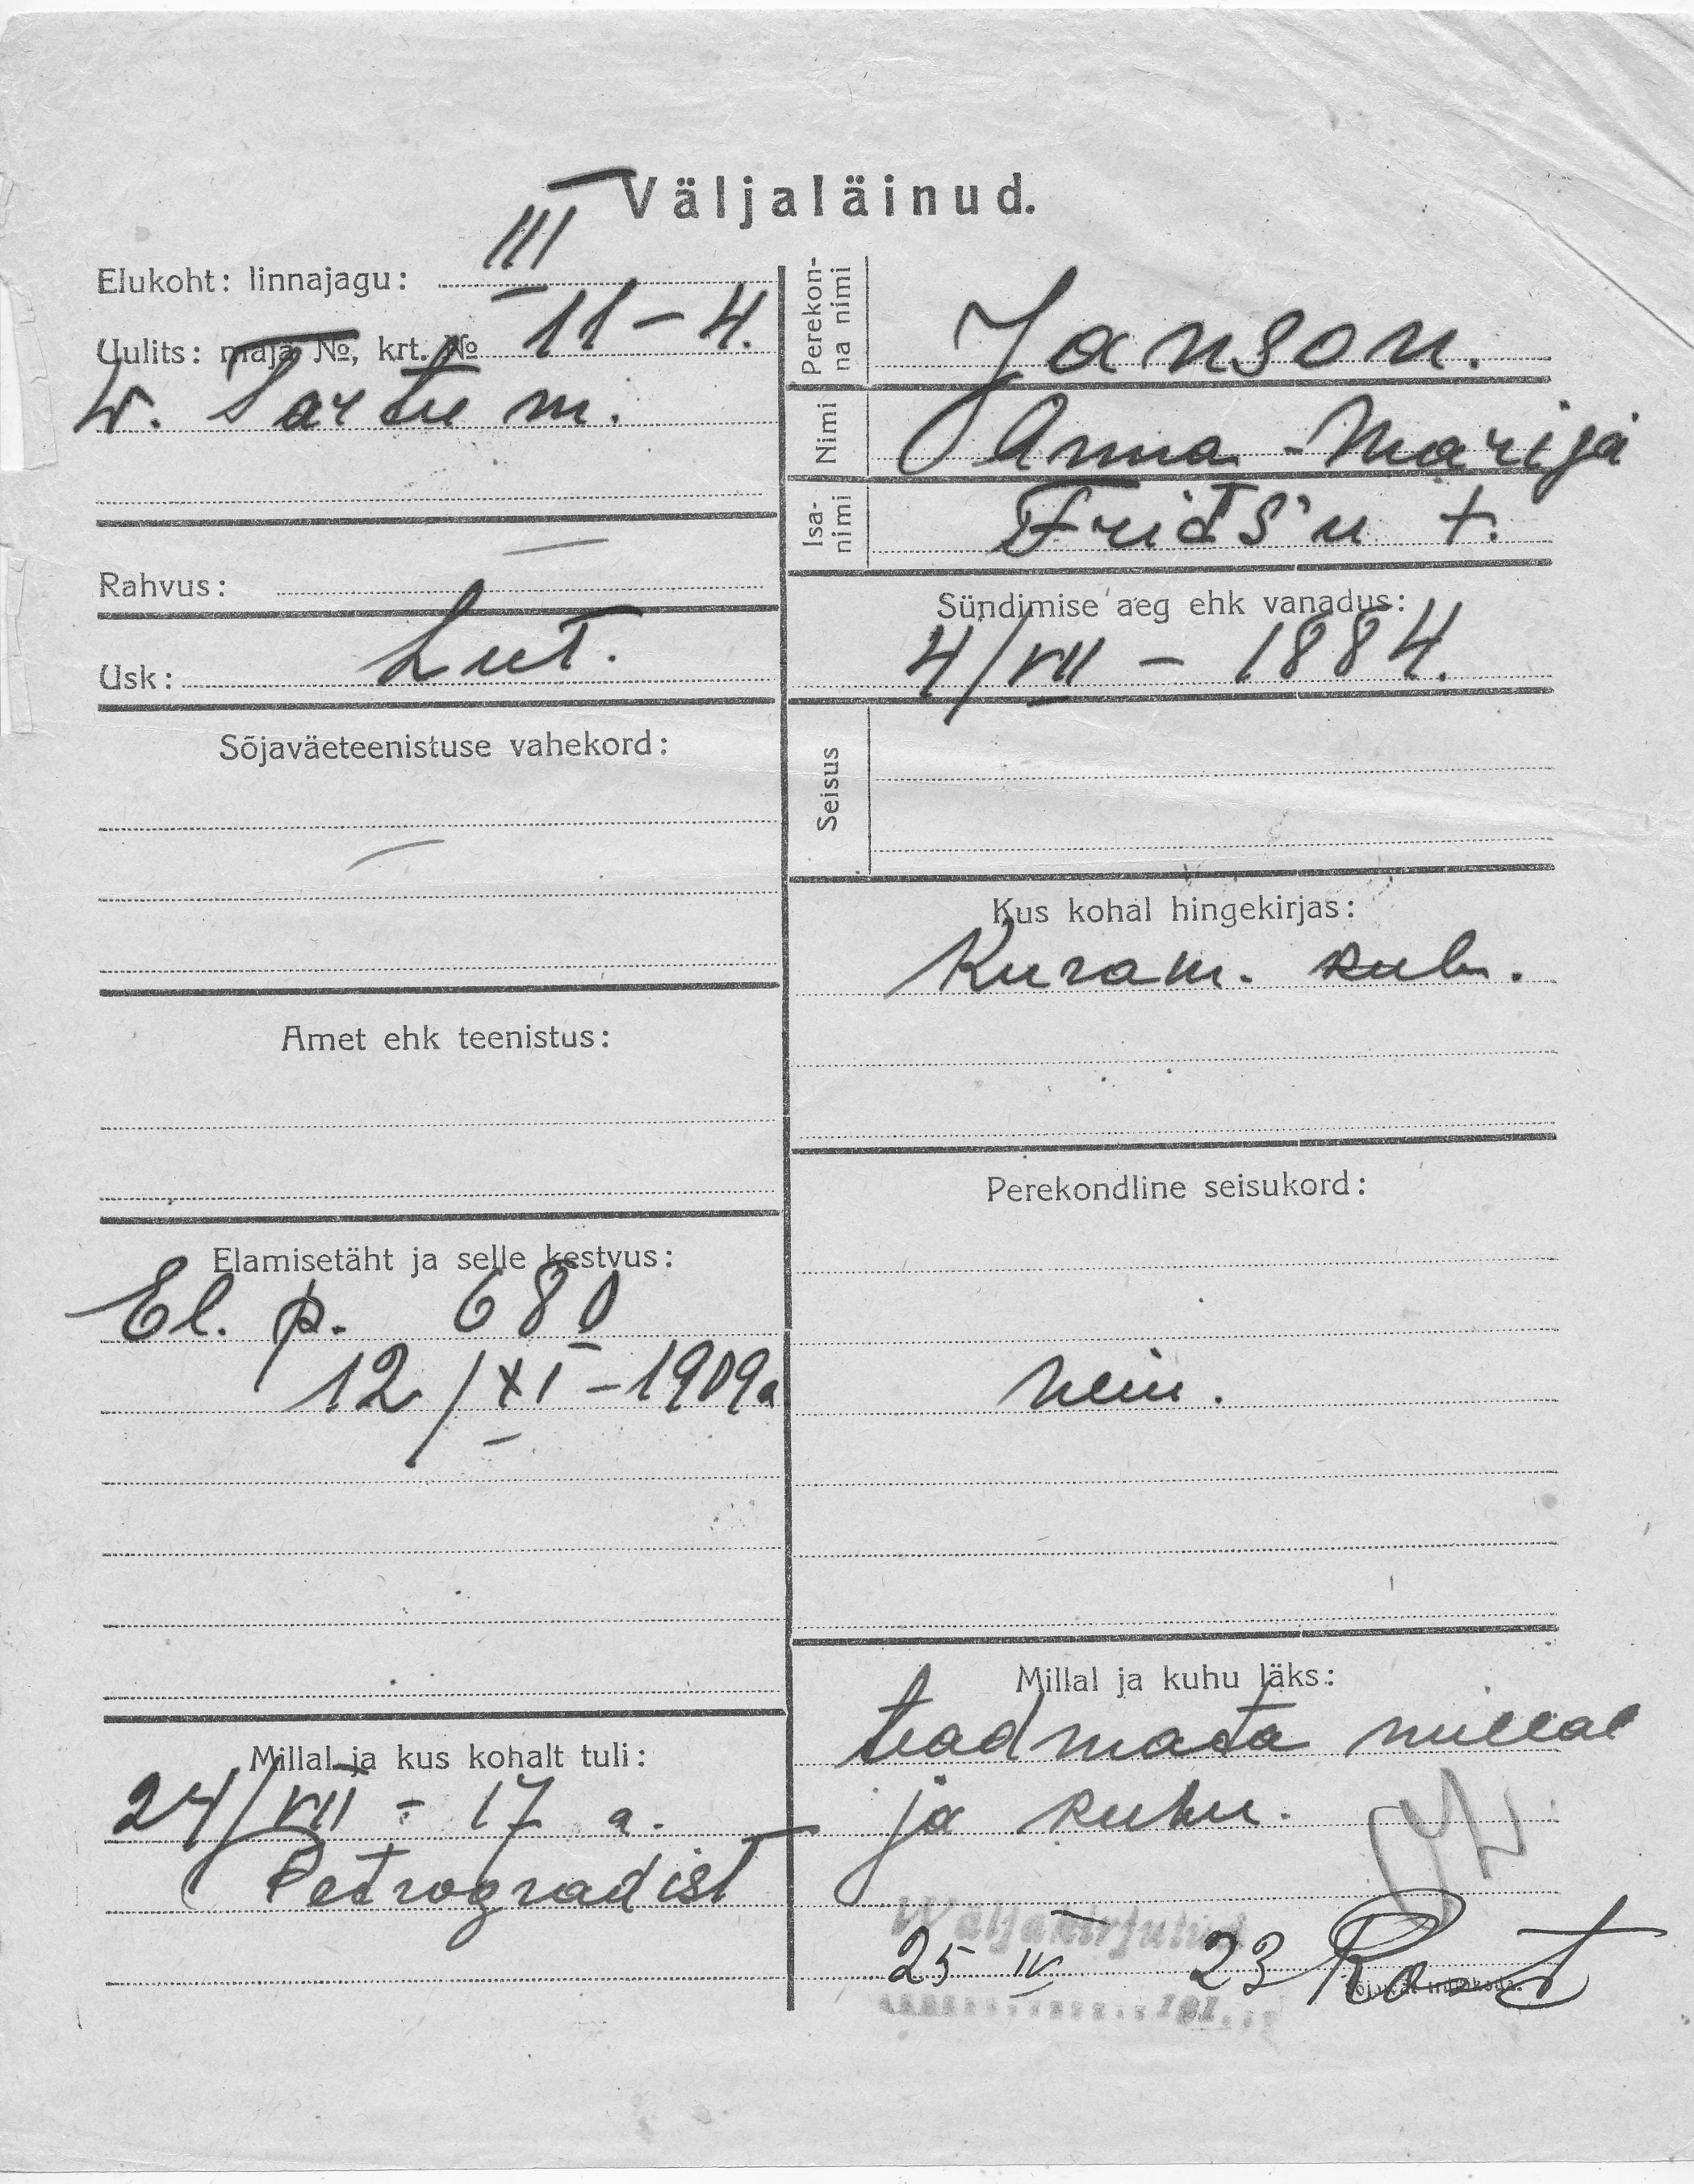 Väljaläinud.
Elukoht: linnajagu: III
Uulits: maja №, krt. № 11 – 4.
W. Tartu m.
Rahvus: —
Usk: Lut.
Sõjaväeteenistuse vahekord:
—
Amet ehk teenistus:
Elamisetäht ja selle kestvus:
El. p. 680
12/XI – 1909 a
Millal ja kus kohalt tuli:
24/VII – 17 a.
Petrogradist
Perekon-
na nimi
Janson.
Nimi
Anna-Marija
Isa-
nimi
Frids'u t.
Sündimise aeg ehk vanadus:
4/VII – 1884.
Seisus
Kus kohal hingekirjas:
Kuram. kub.
Perekondline seisukord:
Millal ja kuhu läks:
teadmata millal
ja kuhu.
Wäljakirjutud
25 IV 23
191